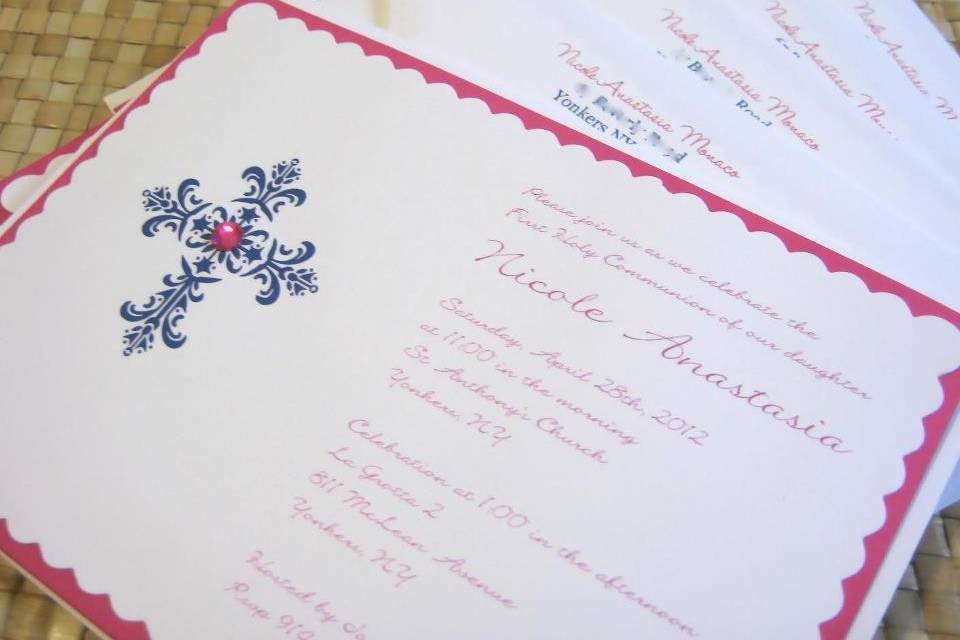 Nicole Anastasia Monaco
Yonkers NY
Nicole Anastasia Monaco
Road
Nicole Anastasia Mo
Nicole Anastasia M
Please join us as we celebrate the
First Holy Communion of our daughter
Nicole Anastasia
Saturday, April 28th, 2012
at 11:00 in the morning
St Anthony's Church
Yonkers, NY
Celebration at 1:00 in the afternoon
La Grotta 2
811 McLean Avenue
Yonkers, NY
Hosted by
Rsvp 914